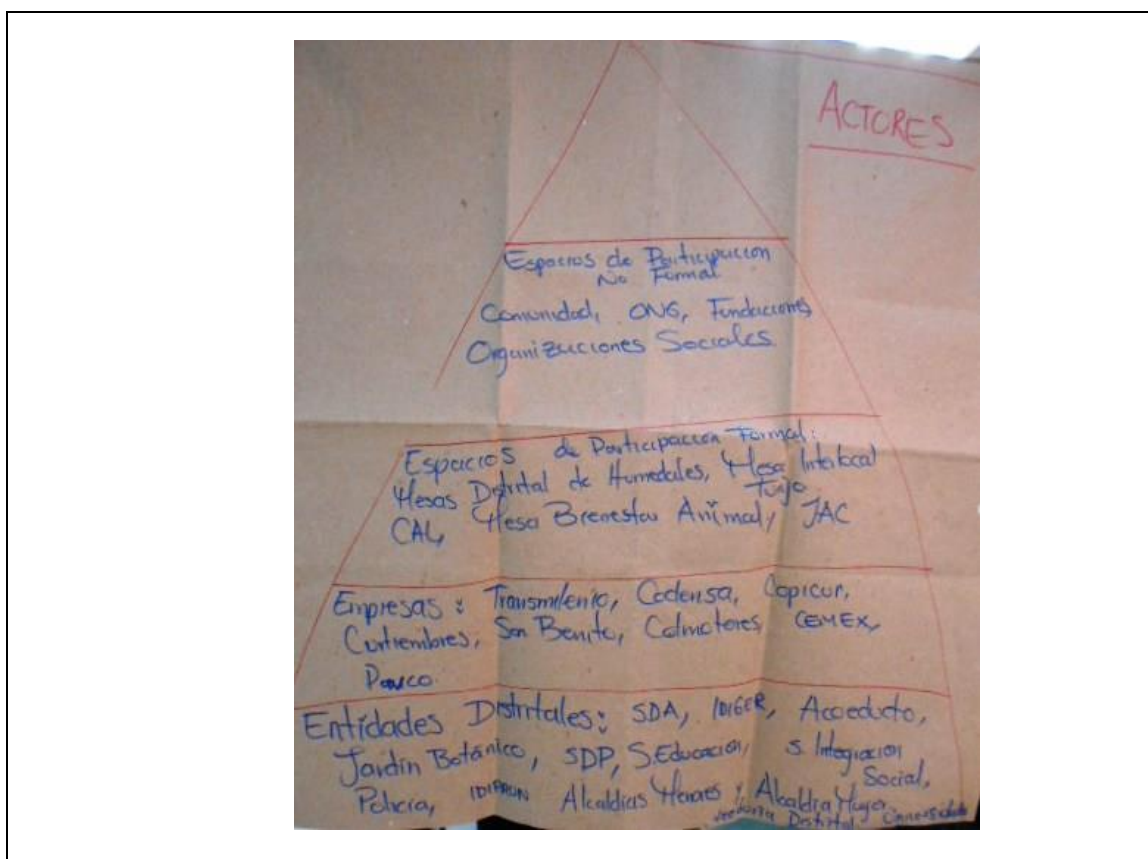 ACTORES
Espacios de Participacion
No Formal
Comunidad, ONG, Fundaciones,
Organizaciones Sociales.
Espacios de Participacion Formal:
Mesas Distrital de Humedales, Mesa Interlocal
Tunjo
CAL, Mesa Bienestar Animal, JAC
Empresas: Transmilenio, Codensa, Copicur,
Curtiembres, San Benito, Colmotores, CEMEX,
Pavco
Entidades Distritales: SDA, IDIGER, Acoeducto,
Jardín Botánico, SDP, S.Educacion, S. Integracion
Social,
Policia, IDIPRON Alcaldias y Alcaldia Mayor
Distrital